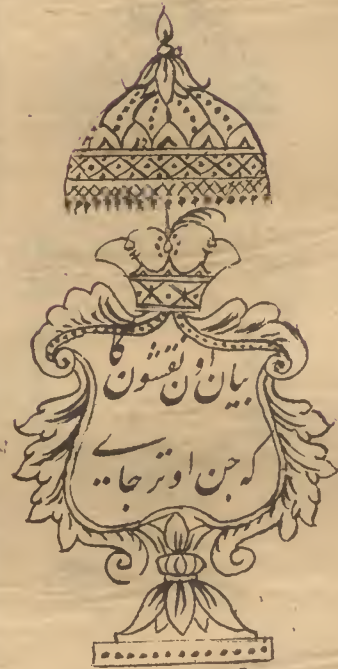 بیان اون نقشون کا
که جن اوتر جاے